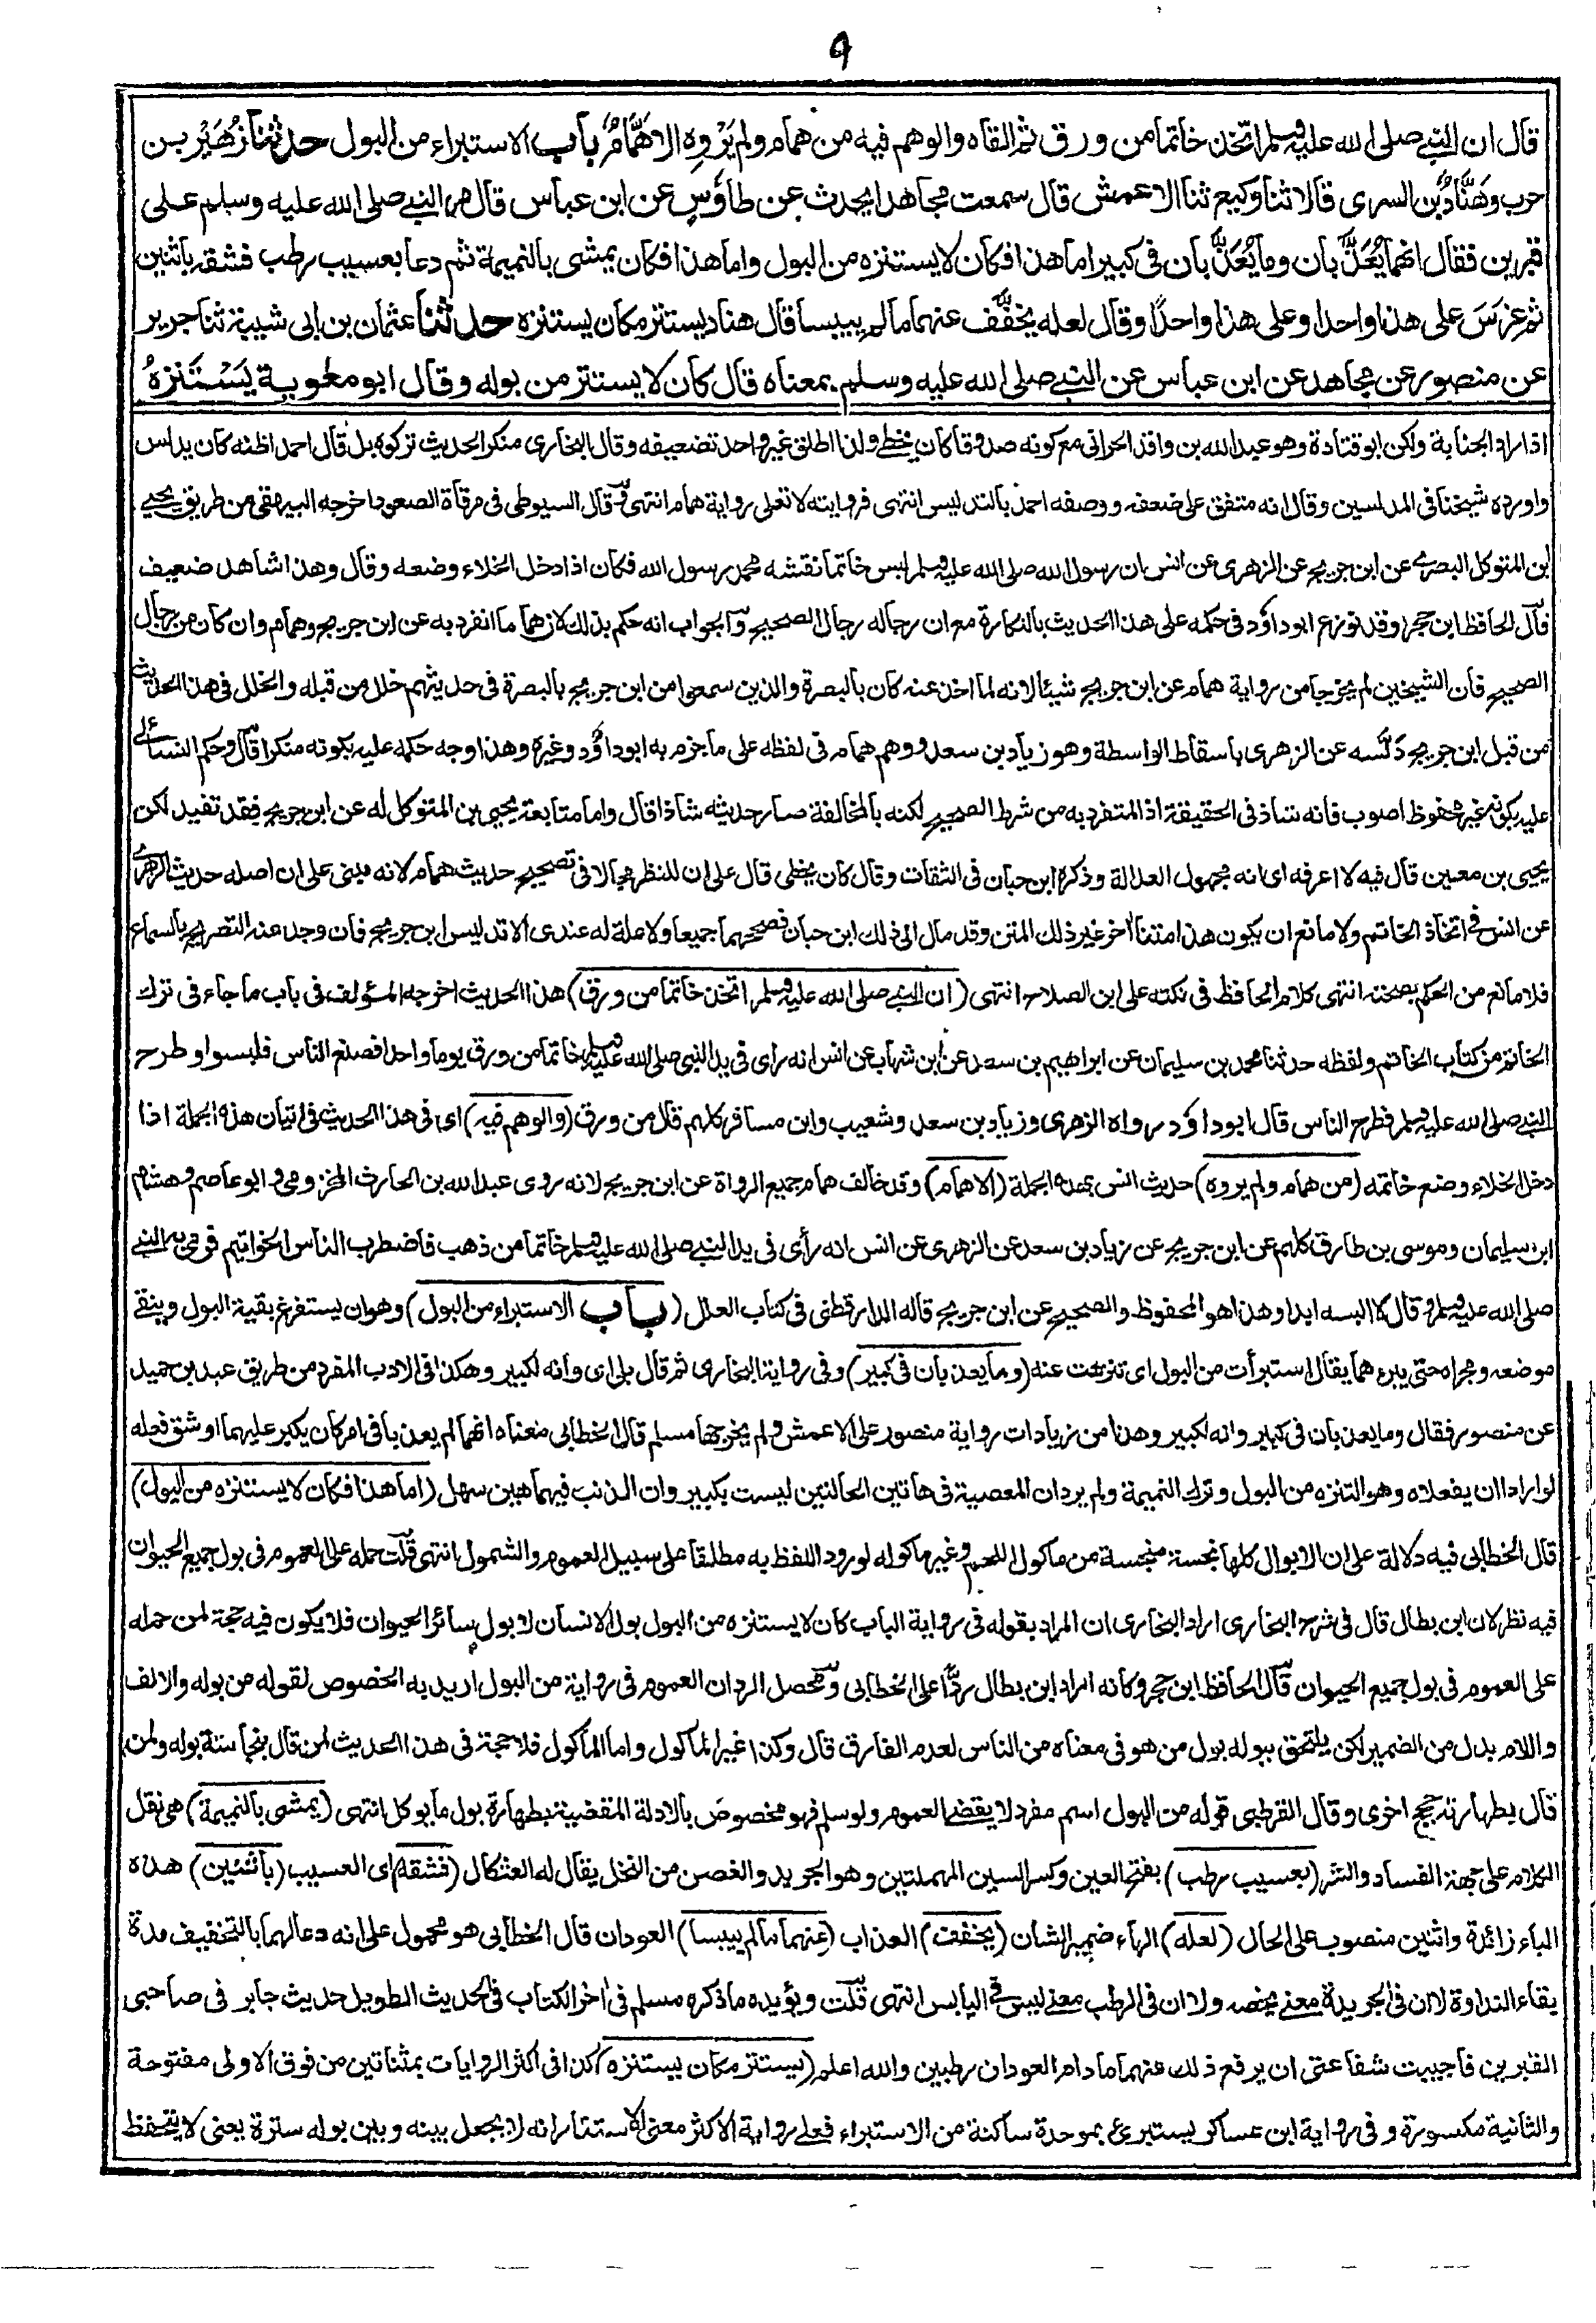 ٩
قال ان النبي صلى الله عليه وسلم اتخذ خاتما من ورق ثم القاه والوهم فيه من همام ولم يَرْوِه الا هَمَّامٌ باب الاستبراء من البول حدثنا زُهَيْر بن
حرب وهَنَّادُ بن السرى قالا ثنا وكيع ثنا الاعمش قال سمعت مجاهدا يحدث عن طاؤسٍ عن ابن عباس قال مر النبي صلى الله عليه وسلم على
قبرين فقال انهما يُعَذَّبان وما يُعَذَّبان فى كبير اما هذا فكان لا يستنزه من البول واما هذا فكان يمشى بالنميمة ثم دعا بعسيب رطب فشقه باثنين
ثم غرَسَ على هذا واحدا وعلى هذا واحدًا وقال لعله يخفَّف عنهما ما لم ييبسا قال هناد يستتر مكان يستنزه حدثنا عثمان بن ابى شيبة ثنا جرير
عن منصور عن مجاهد عن ابن عباس عن النبي صلى الله عليه وسلم بمعناه قال كان لا يستتر من بوله وقال ابو معٰوية يَسْتَنزهُ
اذا راد الجنابة ولكن ابو قتادة وهو عبد الله بن واقد الحرانى مع كونه صدوقا كان يخطئ ولذا اطلق غير واحد تضعيفه وقال البخارى منكر الحديث تركوه بل قال احمد اظنه كان يدلس
واورده شيخنا فى المدلسين وقال انه متفق على ضعفه ووصفه احمد بالتدليس انتهى فروايته لا تعلى رواية همام انتهى قال السيوطى فى مرقاة الصعود اخرجه البيهقى من طريق يحيى
بن المتوكل البصرى عن ابن جريج عن الزهرى عن انس ان رسول الله صلى الله عليه وسلم لبس خاتما نقشه محمد رسول الله فكان اذا دخل الخلاء وضعه وقال وهذا شاهد ضعيف
قال الحافظ ابن حجر وقد نوزع ابو داؤد فى حكمه على هذا الحديث بالنكارة مع ان رجاله رجال الصحيح والجواب انه حكم بذلك لان هماما انفرد به عن ابن جريج وهمام وان كان من رجال
الصحيح فان الشيخين لم يخرجا من رواية همام عن ابن جريج شيئا لانه لما اخذ عنه كان بالبصرة والذين سمعوا من ابن جريج بالبصرة فى حديثهم خلل من قبله والخلل فى هذا الحديث
من قبل ابن جريج دلّسه عن الزهرى باسقاط الواسطة وهو زياد بن سعد ووهم همام فى لفظه على ما جزم به ابو داؤد وغيره وهذا وجه حكمه عليه بكونه منكرا قال وحكم النسائى
عليه بكونه غير محفوظ اصوب فانه شاذ فى الحقيقة اذ المتفرد به من شرط الصحيح لكنه بالمخالفة صار حديثه شاذا قال واما متابعة يحيى بن المتوكل له عن ابن جريج فقد تفيد لكن
يحيى بن معين قال فيه لا اعرفه اى انه مجهول العدالة وذكره ابن حبان فى الثقات وقال كان يخطى قال على ان للنظر مجالا فى تصحيح حديث همام لانه مبنى على ان اصله حديث الزهرى
عن انس فى اتخاذ الخاتم ولا مانع ان يكون هذا متنا اخر غير ذلك المتن وقد مال الى ذلك ابن حبان فصححهما جميعا ولا علة له عندى الا تدليس ابن جريج فان وجد عنه التصريح بالسماع
فلا مانع من الحكم بصحته انتهى كلام الحافظ فى نكته على ابن الصلاح انتهى (ان النبي صلى الله عليه وسلم اتخذ خاتما من ورق) هذا الحديث اخرجه المؤلف فى باب ما جاء فى ترك
الخاتم من كتاب الخاتم ولفظه حدثنا محمد بن سليمان عن ابراهيم بن سعد عن ابن شهاب عن انس انه راى فى يد النبى صلى الله عليه وسلم خاتما من ورق يوما واحدا فصنع الناس فلبسوا وطرح
النبي صلى الله عليه وسلم فطرح الناس قال ابو داؤد رواه الزهرى وزياد بن سعد وشعيب وابن مسافر كلهم قال من ورق (والوهم فيه) اى فى هذا الحديث فى اتيان هذه الجملة اذا
دخل الخلاء وضع خاتمه (من همام ولم يروه) حديث انس بهذه الجملة (الا همام) وقد خالف همام جميع الرواة عن ابن جريج لانه روى عبد الله بن الحارث المخزومى وابو عاصم وهشام
ابن سليمان وموسى بن طارق كلهم عن ابن جريج عن زياد بن سعد عن الزهرى عن انس انه رأى فى يد النبي صلى الله عليه وسلم خاتما من ذهب فاضطرب الناس الخواتيم فرمى به النبي
صلى الله عليه وسلم وقال لا البسه ابدا وهذا هو المحفوظ والصحيح عن ابن جريج قاله الدارقطنى فى كتاب العلل (باب الاستبراء من البول) وهو ان يستفرغ بقية البول وينقى
موضعه ومجراه حتى يبرءهما يقال استبرأت من البول اى تنزهت عنه (وما يعذبان فى كبير) وفى رواية البخارى ثم قال بلى اى وانه لكبير وهكذا فى الادب المفرد من طريق عبد بن حميد
عن منصور فقال وما يعذبان فى كبير وانه لكبير وهذا من زيادات رواية منصور على الاعمش ولم يخرجها مسلم قال الخطابى معناه انهما لم يعذبا فى امر كان يكبر عليهما او شق فعله
لو ارادا ان يفعلاه وهو التنزه من البول وترك النميمة ولم يرد ان المعصية فى هاتين الحالتين ليست بكبير وان الذنب فيهما هين سهل (اما هذا فكان لا يستنزه من البول)
قال الخطابى فيه دلالة على ان الابوال كلها نجسة منجسة من ماكول اللحم وغير ماكوله لورود اللفظ به مطلقا على سبيل العموم والشمول انتهى قلت حمله على العموم فى بول جميع الحيوان
فيه نظر لان ابن بطال قال فى شرح البخارى اراد البخارى ان المراد بقوله فى رواية الباب كان لا يستنزه من البول بول الانسان لا بول سائر الحيوان فلا يكون فيه حجة لمن حمله
على العموم فى بول جميع الحيوان قال الحافظ ابن حجر وكانه اراد ابن بطال ردًّا على الخطابى ومحصل الرد ان العموم فى رواية من البول اريد به الخصوص لقوله من بوله والالف
واللام بدل من الضمير لكن يلتحق ببوله بول من هو فى معناه من الناس لعدم الفارق قال وكذا غير المأكول واما المأكول فلا حجة فى هذا الحديث لمن قال بنجاسة بوله ولمن
قال بطهارته حجج اخرى وقال القرطبى قوله من البول اسم مفرد لا يقتضى العموم ولو سلم فهو مخصوص بالادلة المقتضية بطهارة بول ما يوكل انتهى (يمشى بالنميمة) هى نقل
الكلام على جهة الفساد والشر (بعسيب رطب) بفتح العين وكسر السين المهملتين وهو الجريد والغصن من النخل يقال له العثكال (فشقه) اى العسيب (باثنين) هذه
الباء زائدة واثنين منصوب على الحال (لعله) الهاء ضمير الشان (يخفف) العذاب (عنهما ما لم ييبسا) العودان قال الخطابى هو محمول على انه دعا لهما بالتخفيف مدة
بقاء النداوة لا ان فى الجريدة معنى يخصه ولا ان فى الرطب معنى ليس فى اليابس انتهى قلت ويؤيده ما ذكره مسلم فى اخر الكتاب فى الحديث الطويل حديث جابر فى صاحبى
القبرين فاجيبت شفاعتى ان يرفع ذلك عنهما ما دام العودان رطبين والله اعلم (يستتر مكان يستنزه) كذا فى اكثر الروايات بمثناتين من فوق الاولى مفتوحة
والثانية مكسورة وفى رواية ابن عساكر يستبرئ بموحدة ساكنة من الاستبراء فعلى رواية الاكثر معنى الاستتار انه لا يجعل بينه وبين بوله سترة يعنى لا يتحفظ